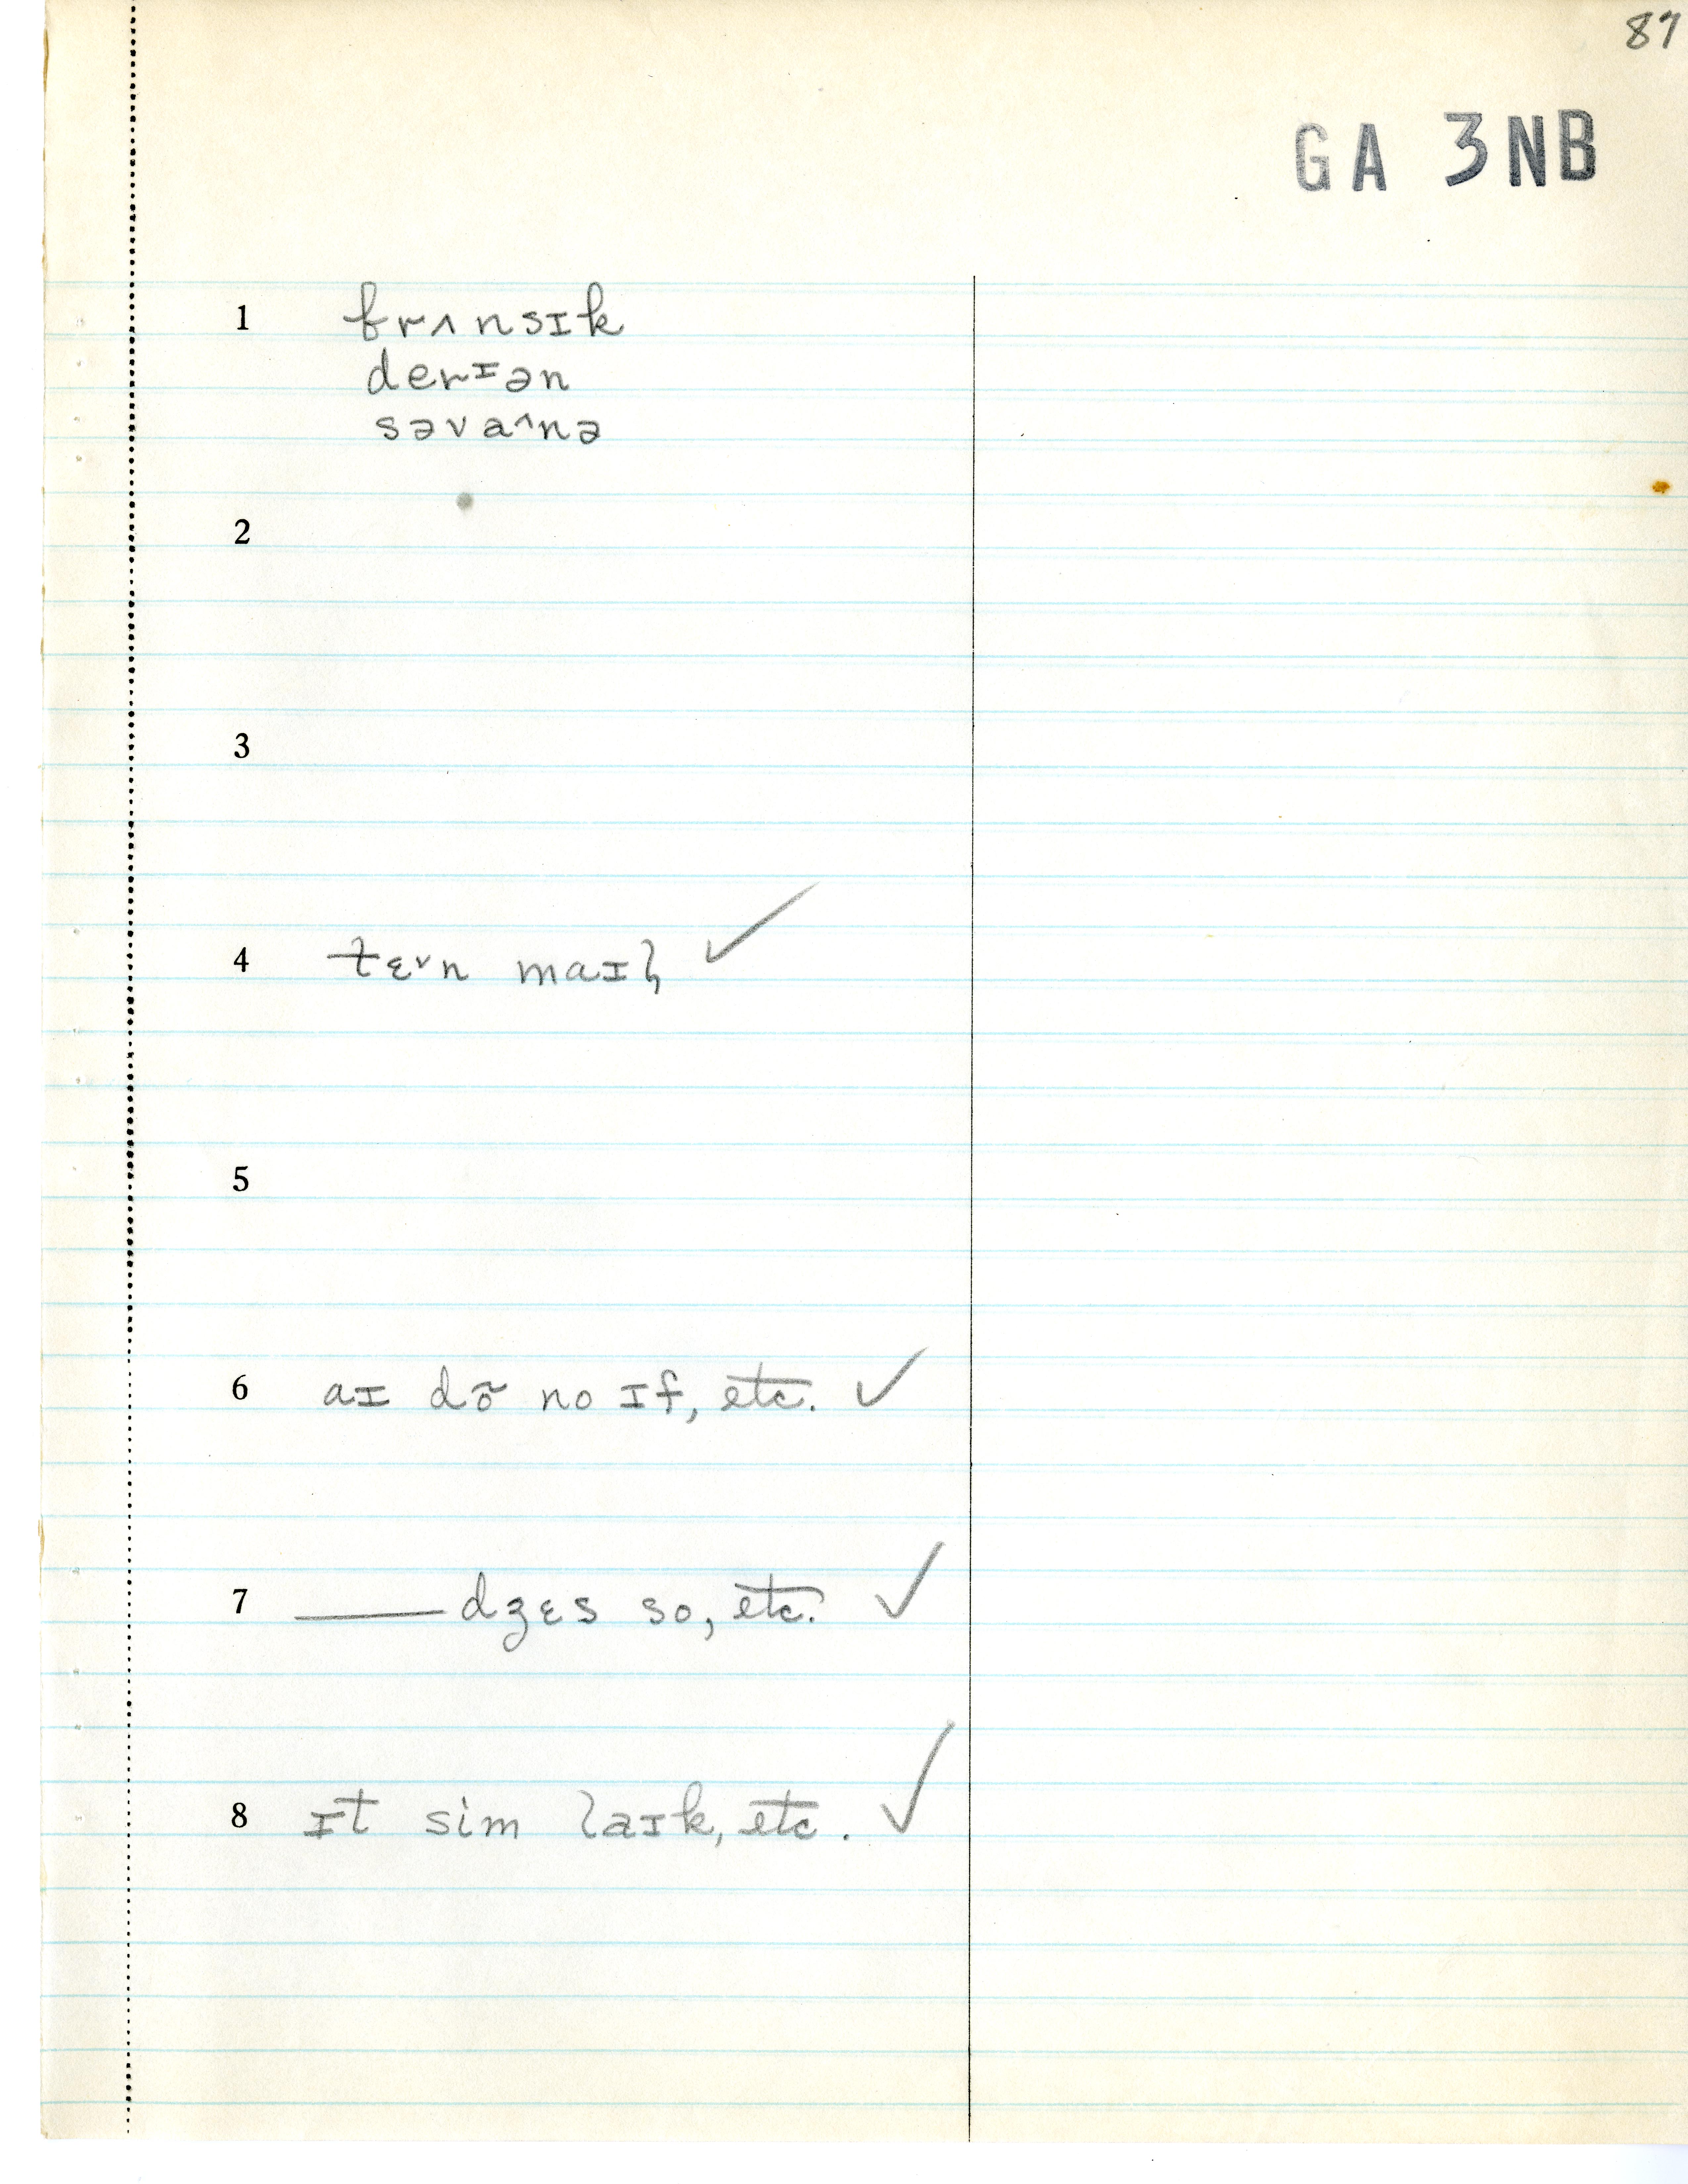 87
GA 3NB
1 brʌnsɪk
derɪən
səvaʌnə
2
3
4 tɛvn maɪl ✓
5
6 aɪ dõ no ɪf, etc. ✓
7 ——— dʒɛs so, etc. ✓
8 ɪt sim laɪk, etc. ✓